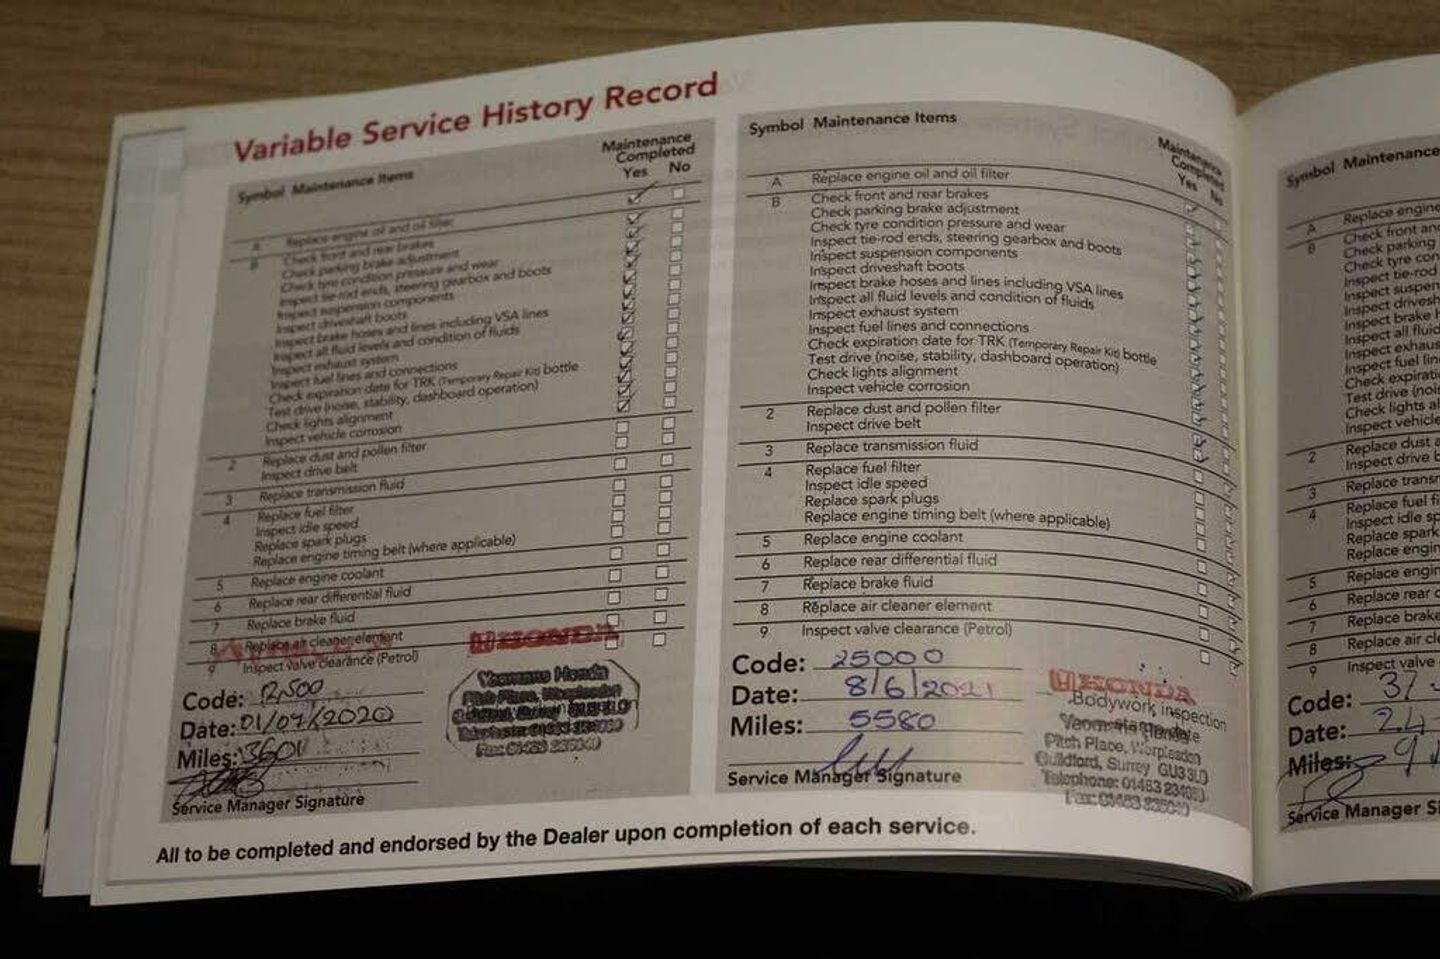 Variable Service History Record
Symbol Maintenance Items
Maintenance
Completed
Yes No
A Replace engine oil and oil filter
B Check front and rear brakes
Check parking brake adjustment
Check tyre condition pressure and wear
Inspect tie-rod ends, steering gearbox and boots
Inspect suspension components
Inspect driveshaft boots
Inspect brake hoses and lines including VSA lines
Inspect all fluid levels and condition of fluids
Inspect exhaust system
Inspect fuel lines and connections
Check expiration date for TRK (Temporary Repair Kit) bottle
Test drive (noise, stability, dashboard operation)
Check lights alignment
Inspect vehicle corrosion
2 Replace dust and pollen filter
Inspect drive belt
3 Replace transmission fluid
4 Replace fuel filter
Inspect idle speed
Replace spark plugs
Replace engine timing belt (where applicable)
5 Replace engine coolant
6 Replace rear differential fluid
7 Replace brake fluid
8 Replace air cleaner element
9 Inspect valve clearance (Petrol)
HONDA
Yeomans Honda
Pitch Place, Worplesdon
Code: 12,500
Date: 01/07/2020
Miles: 3601
Service Manager Signature
Symbol Maintenance Items
Maintenance
Completed
Yes No
A Replace engine oil and oil filter
B Check front and rear brakes
Check parking brake adjustment
Check tyre condition pressure and wear
Inspect tie-rod ends, steering gearbox and boots
Inspect suspension components
Inspect driveshaft boots
Inspect brake hoses and lines including VSA lines
Inspect all fluid levels and condition of fluids
Inspect exhaust system
Inspect fuel lines and connections
Check expiration date for TRK (Temporary Repair Kit) bottle
Test drive (noise, stability, dashboard operation)
Check lights alignment
Inspect vehicle corrosion
2 Replace dust and pollen filter
Inspect drive belt
3 Replace transmission fluid
4 Replace fuel filter
Inspect idle speed
Replace spark plugs
Replace engine timing belt (where applicable)
5 Replace engine coolant
6 Replace rear differential fluid
7 Replace brake fluid
8 Replace air cleaner element
9 Inspect valve clearance (Petrol)
Code: 25000
Date: 8/6/2021
Miles: 5580
Service Manager Signature
HONDA
Bodywork inspection
Pitch Place, Worplesdon
Guildford, Surrey GU3 3LD
Telephone: 01483
Fax:
All to be completed and endorsed by the Dealer upon completion of each service.
Symbol Maintenance
A Replace engine
B Check front and
Check parking
Check tyre con
Inspect tie-rod
Inspect suspen
Inspect drivesh
Inspect brake h
Inspect all fluid
Inspect exhaus
Inspect fuel lin
Check expirati
Test drive (noi
Check lights al
Inspect vehicle
2 Replace dust a
Inspect drive b
3 Replace transm
4 Replace fuel fi
Inspect idle sp
Replace spark
Replace engin
5 Replace engin
6 Replace rear d
7 Replace brake
8 Replace air cle
9 Inspect valve
Code: 37
Date: 24
Miles: 9
Service Manager Si